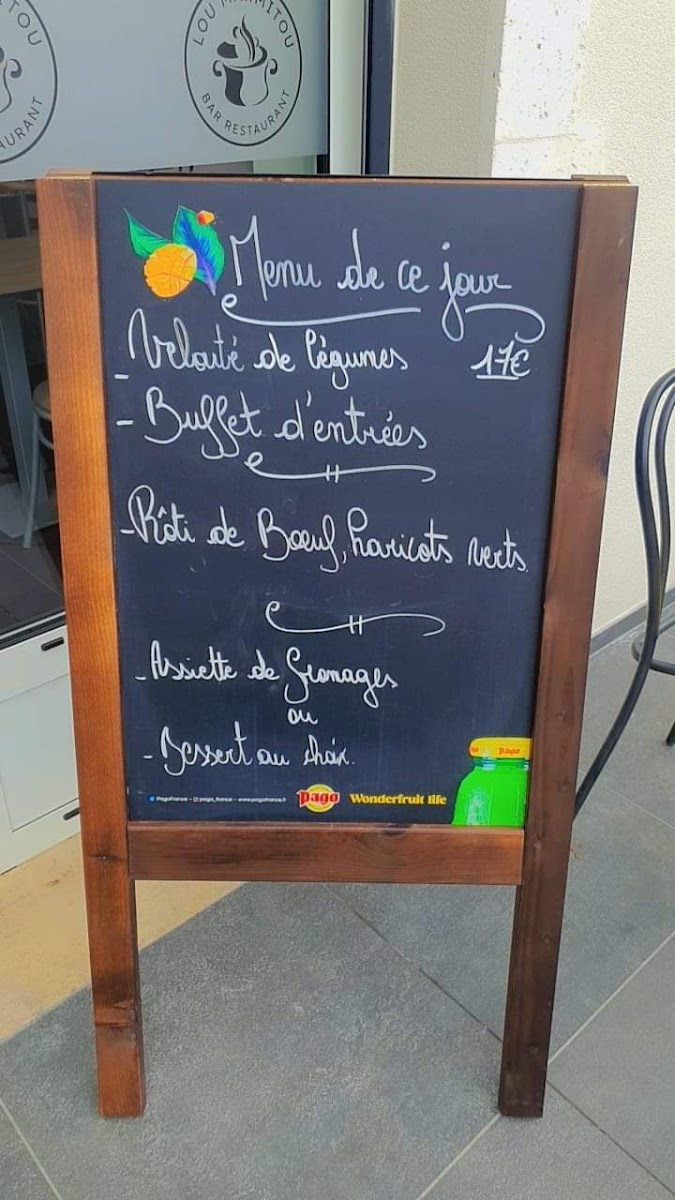 LOU MARMITOU
BAR RESTAURANT
AURANT
Menu de ce jour
- Velouté de légumes 17€
- Buffet d'entrées
- Rôti de Bœuf, haricots verts.
- Assiette de fromages
ou
- Dessert au choix.
PagoFrance - pago_france - www.pagofrance.fr
pago Wonderfruit life
pago